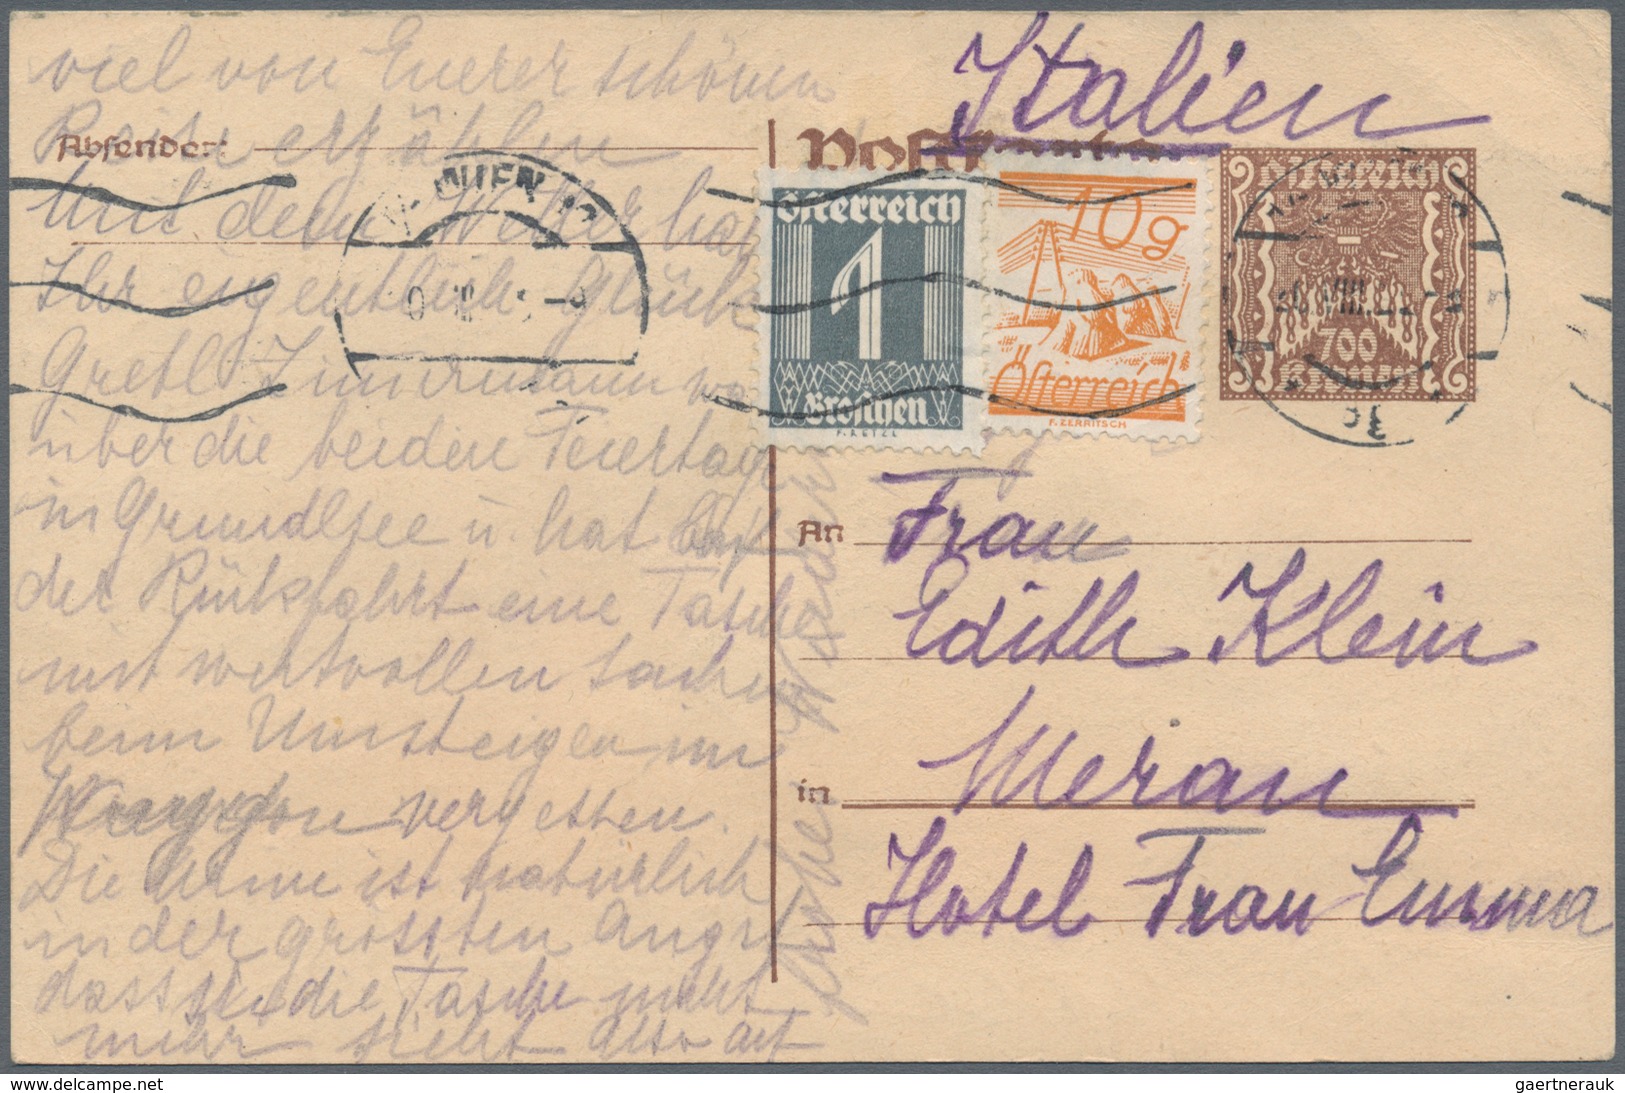 Italien
viel von Euerer schönen
Reise erzählen
Absender:
Mit dem Wetter hat
Ihr eigentlich Glück
Gretl Zimmermann wa
über die beiden Feiertage
in Grundlsee u. hat auf
der Rückfahrt eine Tasche
mit wertvollen Sachen
beim Umsteigen im
Waggon vergessen.
Die Arme ist natürlich
in der grössten Angst
dass sie die Tasche nicht
mehr sieht also auf
Postkarte
WIEN
Österreich
1
Groschen
10g
Österreich
F. ZERRITSCH
Österreich
700
Kronen
An Frau
Edith Klein
in Meran
Hotel Frau Emma
gaertnerauk